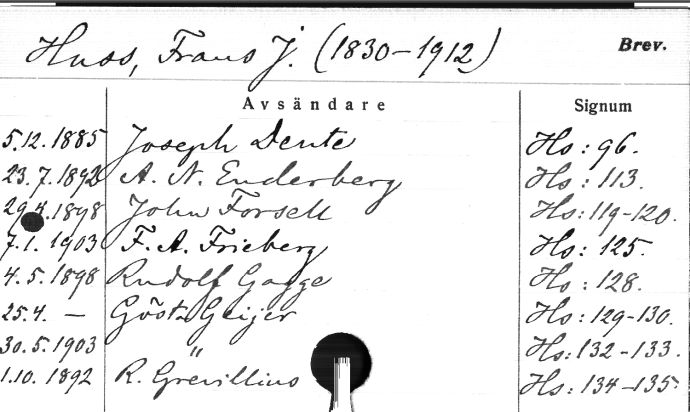 Huss, Frans J. (1830-1912) Brev.
Avsändare Signum
5.12.1885 Joseph Dente Hs: 96.
23.7.1892 A. N. Enderberg Hs: 113.
29.4.1898 John Forsell Hs: 119-120.
7.1.1903 F. A. Frieberg Hs: 125.
4.5.1898 Rudolf Gagge Hs: 128.
25.4. — Gösta Geijer Hs: 129-130.
30.5.1903 " Hs: 132-133.
1.10.1892 R. Grevillius Hs: 134-135.